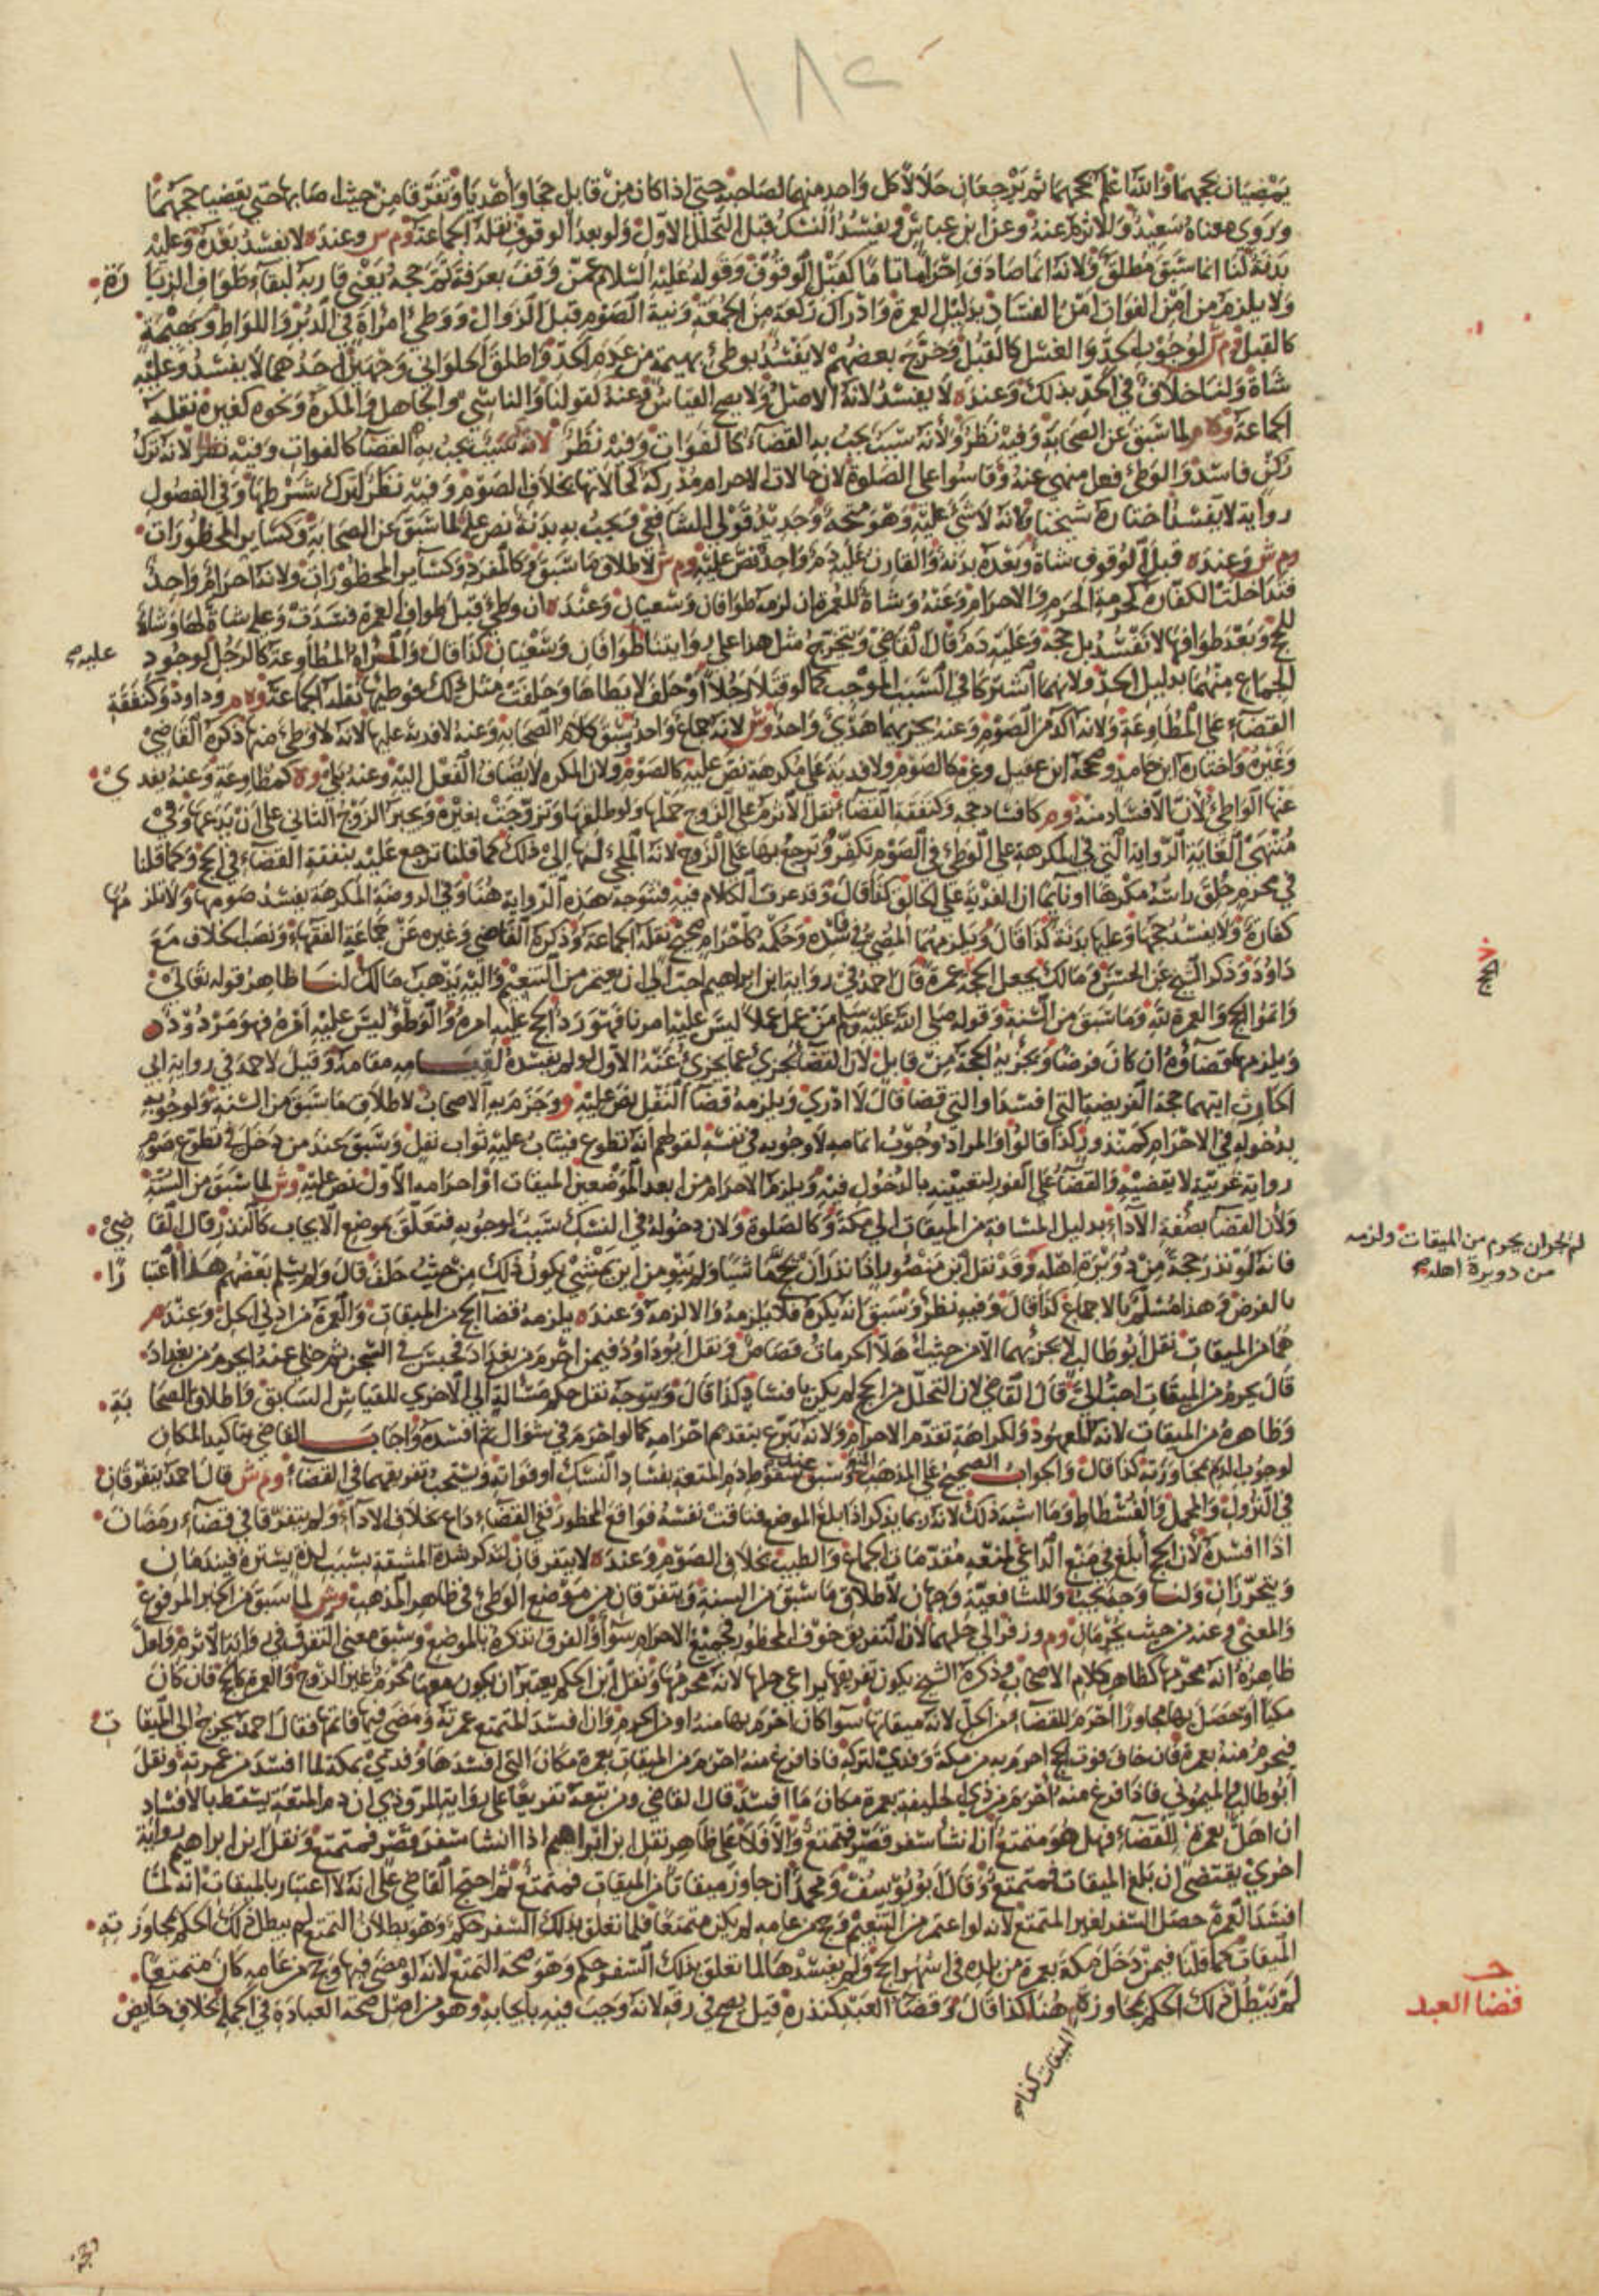 ١٨٢
يمضيان بحجهما والله أعلم بحجهما ثم يرجعان حلالا كل واحد منهما لصاحبه حتى اذا كان من قابل حجا وأهديا وتفرقا من حيث اصابها حتى يقضيا حجهما
وروى معناه سعيد والاثرم عنه وعن ابن عباس ويفسد النسك قبل التحلل الاول ولو بعد الوقوف نقله الجماعة وم ش وعنده لا يفسد بعده وعليه
بدنة لنا ما سبق مطلق ولانه صادف احراما تاما كقبل الوقوف وقوله عليه السلام عمن وقف بعرفة تم حجه يعني قاربه لبقاء طواف الزيارة
ولا يلزم من امن الفوات امن الفساد بدليل العمرة وادراك ركعة من الجمعة ونية الصوم قبل الزوال ووطئ امرأة في الدبر واللواط وبهيمة
كالقبل وم ش لوجوب الحد والغسل كالقبل وخرج بعضهم لا يفسد بوطئ بهيمة من عدم الحد واطلق الحلواني وجهين احدهما لا يفسد وعليه
شاة ولنا خلاف في الحد بذلك وعنده لا يفسد لانه الاصل ولا يصح القياس وعنه كقولنا والناسي والجاهل والمكره ونحوه كغيره نقله
الجماعة وه م لما سبق عن الصحابة وفيه نظر ولأنه سبب يجب به القضاء كالفوات وفيه نظر لانه ترك
ركن فاسد والوطئ فعل منهي عنه وقاسوا على الصلوة لان حالات الاحرام مذكرة كحالاتها بخلاف الصوم وفيه نظر لترك شرطها وفي الفصول
رواية لا يفسد اختاره شيخنا وانه لا شئ عليه وهو متجه وجديد قولي الشافعي ويجب به بدنة نص عليه لما سبق عن الصحابة وكساير المحظورات
وم ش وعنده قبل الوقوف شاة وبعده بدنة والقارن عليه دم واحد نص عليه وم ش لاطلاق ما سبق وكالمفرد وكسائر المحظورات ولانه احرام واحد
فتداخلت الكفارة كحرمة الحرم والاحرام وعنه وشاة للعمرة ان لزمه طوافان وسعيان وعنده ان وطئ قبل طواف العمرة فسدت وعليه شاة لها وشاة
للحج وبعد طوافها لا تفسد بل حجه وعليه دم قال القاضي ويتخرج مثل هذا على روايتنا طوافان وسعيان كذا قال والمرأة المطاوعة كالرجل لوجود
الجماع منهما بدليل الحد ولانهما اشتركا في السبب الموجب كما لو قتلا رجلا أو حلف لا يطاها وحلفت مثل ذلك فوطيها نقله الجماعة وه م وداود وكنفقة
القضاء على المطاوعة ولانه آكد من الصوم وعنه يجزيهما هدي واحد وش لانه جماع واحد وسبق كلام الصحابة وعنه لا فدية عليها لانه لا وطئ منها ذكره القاضي
وغيره واختاره ابن حامد وصححه ابن عقيل وغيره كالصوم ولا فدية على مكرهة نص عليه كالصوم ولان المكره لا يضاف الفعل اليه وعنه بلى وه كمطاوعة وعنه يفدي
عنها الواطئ لأن الافساد منه وم كافساد حجه وكنفقة القضاء نقل الأثرم على الزوج حملها ولو طلقها وتزوجت بغيره ويجبر الزوج الثاني على أن يدعها وفي
منتهى الغاية الرواية التي في المكرهة على الوطئ في الصوم تكفر وترجع بها على الزوج لانه الملجئ لها إلى ذلك كما قلنا ترجع عليه بنفقة القضاء في الحج وكما قلنا
في محرم حلق رأسه مكرها أو نائما ان الفدية على الحالق كذا قال وقد عرف الكلام فيه فيتوجه هذه الرواية هنا وفي الروضة المكرهة يفسد صومها ولا تلزمها
كفارة ولا يفسد حجها وعليها بدنة كذا قال ويلزمهما المضي في فاسده وحكمه كإحرام صحيح نقله الجماعة وذكره القاضي وغيره عن جماعة الفقهاء ونصب الخلاف مع
داود وذكر الشيخ عن الحسن ومالك يجعل الحجة عمرة قال احمد في رواية ابن ابراهيم احب الي ان يعتمر من التنعيم واليه يذهب مالك لنا ظاهر قوله تعالى
وأتموا الحج والعمرة لله وما سبق من السنة وقوله صلى الله عليه وسلم من عمل عملا ليس عليه امرنا فهو رد الحج عليه امره والوطؤ ليس عليه امره فهو مردود
ويلزمهما قضاؤه ان كان فرضا ويجزيه الحجة من قابل لان القضاء يجزئ عما يجزئ عنه الاول لو لم يفسده لقيامه مقامه وقيل لاحمد في رواية ابي
الحارث ايتهما حجة الفريضة التي افسدا او التي قضا قال لا ادري ويلزمه قضاء النفل نص عليه و وجزم به الاصحاب لاطلاق ما سبق من السنة ولوجوبه
بدخوله في الاحرام كمنذور كذا قالوا والمراد وجوب اتمامه لا وجوبه في نفسه لقولهم انه تطوع فيثاب عليه ثواب نفل وسبق عند من دخل في تطوع صوم
رواية غريبة لا يقضيه والقضاء على الفور لتعينه بالدخول فيه ويلزم الاحرام من ابعد الموضعين الميقات او احرامه الأول نص عليه وش لما سبق من السنة
ولأن القضاء بصفة الأداء بدليل المسافة من الميقات الى مكة وكالصلوة ولان دخوله في النسك سبب لوجوبه فتعلق بموضع الايجاب كالنذر قال القاضي
فانه لو نذر حجة من دويرة اهله وقد نقل ابن منصور إذا نذر أن يحج ماشيا ولم ينو من اين يمشي يكون ذلك من حيث حلف قال ولم يسلم بعضهم هذا اعتبارا
بالفرض وهذا مسلم بالاجماع كذا قال وفيه نظر وسبق انه يكره فلا يلزمه والا لزمه وعنده يلزمه قضاء الحج من الميقات والعمرة من ادنى الحل وعند م
هما من الميقات نقل ابو طالب لا يجزئهما الا من حيث أهلا الحرمات قصاص ونقل ابو داود فيمن احرم من بغداد فحبس في السجن ثم خلي عنه أيحرم من بغداد
قال يحرم من الميقات احب الي قال القاضي لان التحلل من الحج لم يكن بافساد كذا قال ويتوجه نقل حكم مسألة الى الاخرى للقياس السابق واطلاق الصحابة
وظاهره من الميقات لانه المعهود ولكراهة تقدم الاحرام ولانه تبرع بتقدم احرامه كما لو احرم في شوال ثم افسده واجاب القاضي بتاكيد المكان
لوجوب الدم بمجاوزته كذا قال والجواب الصحيح على المذهب انه وسبق عند سقوط دم المتعة بفساد النسك أو فواته ويستحب تفريقهما في القضاء وم ش قال احمد يتفرقان
في النزول والمحمل والفسطاط وما اشبه ذلك لانه ربما يذكر اذا بلغ الموضع فتاقت نفسه فواقع المحظور ففي القضاء داع بخلاف الاداء ولم يتفرقا في قضاء رمضان
اذا افسده لأن الحج أبلغ في منع الداعي لمنعه مقدمات الجماع والطيب بخلاف الصوم وعنده لا يتفرقان لتذكر شدة المشقة بسبب لذة يسيرة فيندمان
ويتحرزان ولنا وجه يجب وللشافعية وجهان لاطلاق ما سبق من السنة ويتفرقان من موضع الوطئ في ظاهر المذهب وش لما سبق من الخبر المرفوع
والمعنى وعنه من حيث يحرمان وم وزفر الى حلهما لأن التفريق خوف المحظور فجميع الاحرام سواء والفرق تذكره بالموضع وسبق معنى التفرق في رواية الأثرم ولعل
ظاهره انه محرمها كظاهر كلام الاصحاب وذكره الشيخ يكون تفريقها يراعي حلها لانه محرمها ونقل ابن الحكم يعتبر ان يكون معها محرم غير الزوج والعمرة كالحج فان كان
مكيا أو حصل بها مجاورا احرم للقضاء من الحل لانه ميقاتها سواء كان احرم بها منه او من الحرم وان افسد المتمتع عمرته ومضى فيها فاتمها فقال احمد يخرج الى الميقات
فيحرم منه بعمرة فان خاف فوت الحج احرم به من مكة وفدي لتركه فاذا فرغ منه احرم من الميقات بعمرة مكان التي افسدها وفدي بمكة لما افسد من عمرته ونقل
ابو طالب والميموني فاذا فرغ منه احرم من ذي الحليفة بعمرة مكان ما افسد قال القاضي ومن تبعه تفريعا على رواية المروذي ان دم المتعة يسقط بالافساد
ان اهل بعمرة للقضاء فهل هو متمتع ان انشأ سفر قصر فتمتع والا فلا على ظاهر نقل ابن ابراهيم اذا انشأ سفر قصر فمتمتع ونقل ابن ابراهيم رواية
اخرى يقتضي ان بلغ الميقات فمتمتع وقال ابو يوسف ومحمد ان جاوز ميقاتا من المواقيت فمتمتع ثم احتج القاضي على انه لا اعتبار بالميقات انه لما
افسد العمرة حصل السفر لغير المتمتع لانه لو اعتمر من التنعيم وحج من عامه لم يكن متمتعا فلما تعلق بذلك السفر حكم وهو بطلان التمتع لم يبطل ذلك الحكم بمجاوزته
الميقات كما قلنا فيمن دخل مكة بعمرة من بلده في اشهر الحج ولم يفسدها لما تعلق بذلك السفر حكم وهو صحة التمتع لانه لو مضى فيها وحج من عامه كان متمتعا
لم يبطل ذلك الحكم بمجاوزة هنا كذا قال وقضاء العبد كنذره قيل يصح في رقه لانه وجب فيه بايجابه وهو من اصل صحة العبادة في الجملة بخلاف حائض
الميقات كذا
عليه
الحج
لم الجواز ان يحرم من الميقات ولزمه
من دويرة اهله
قضا العبد